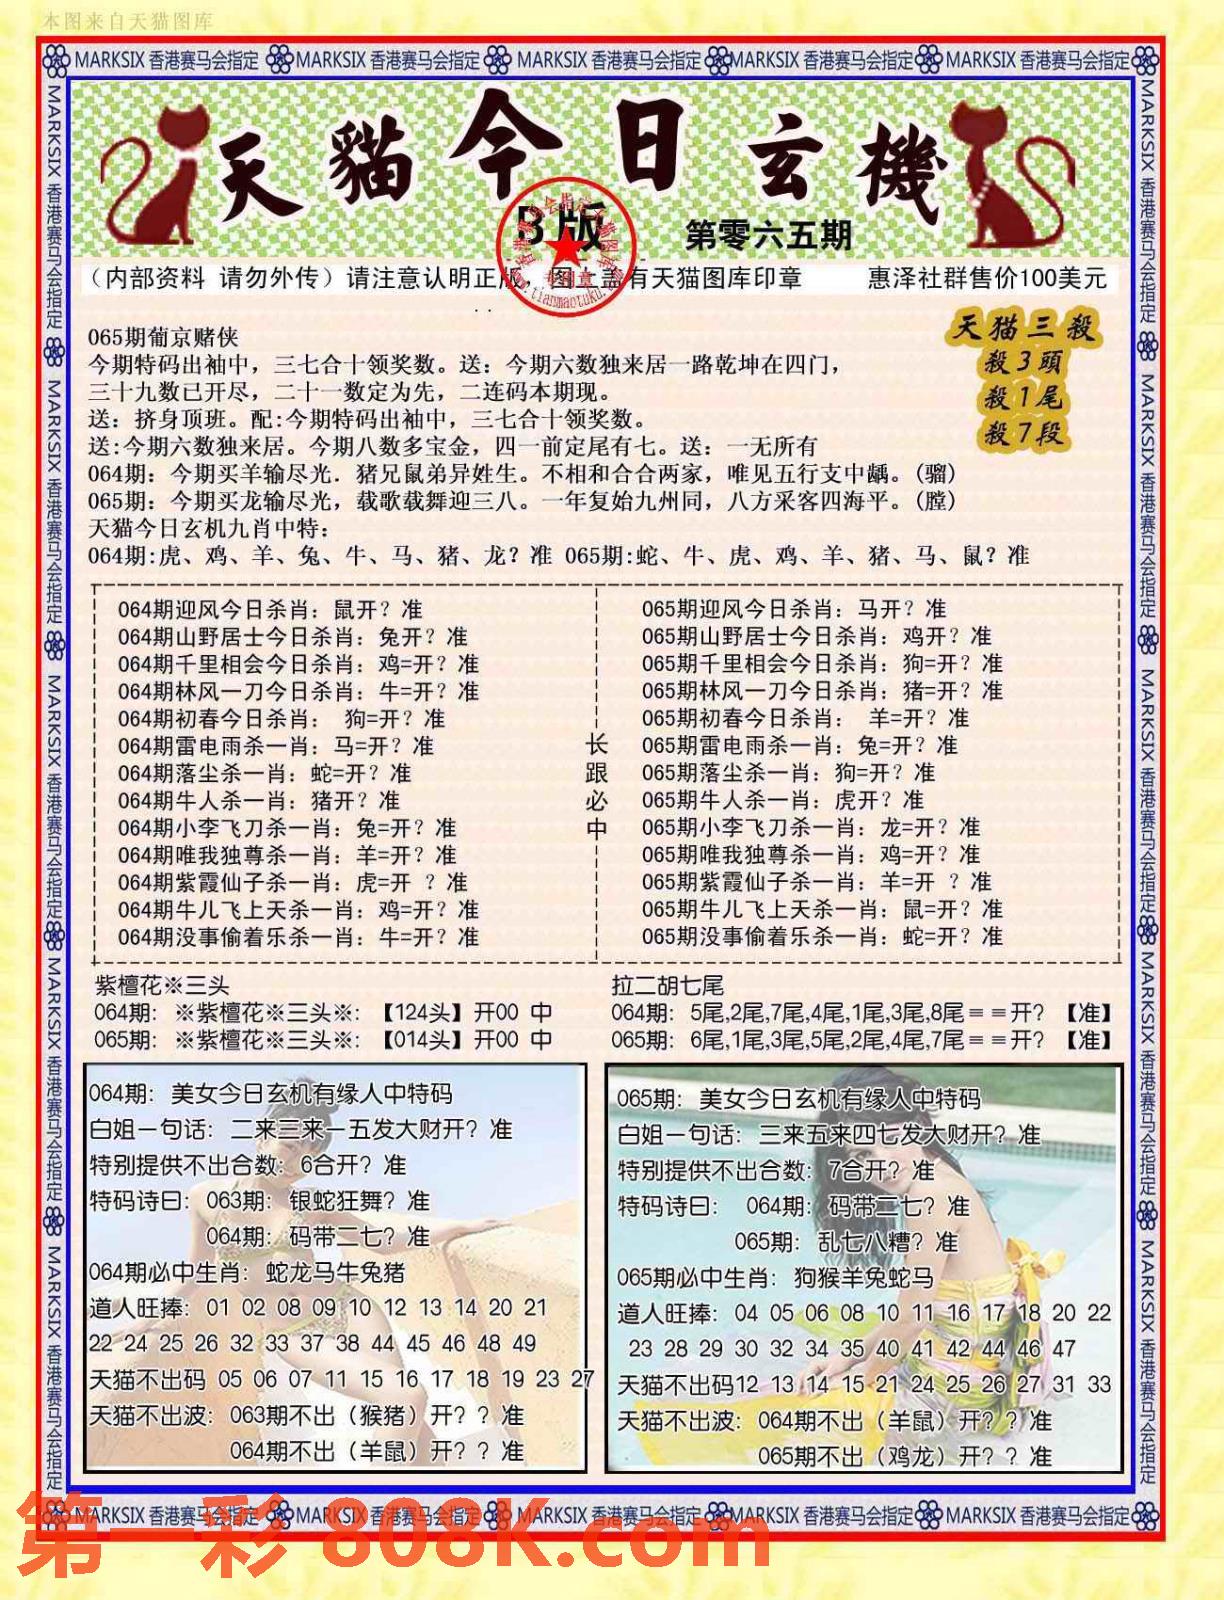 本图来自天猫图库
MARKSIX 香港赛马会指定 MARKSIX 香港赛马会指定 MARKSIX 香港赛马会指定 MARKSIX 香港赛马会指定 MARKSIX 香港赛马会指定
天貓今日玄機
B版
第零六五期
（内部资料 请勿外传）请注意认明正版 图上盖有天猫图库印章 惠泽社群售价100美元
天猫三殺
殺3頭
殺1尾
殺7段
065期葡京赌侠
今期特码出袖中，三七合十领奖数。送：今期六数独来居一路乾坤在四门，
三十九数已开尽，二十一数定为先，二连码本期现。
送：挤身顶班。配:今期特码出袖中，三七合十领奖数。
送:今期六数独来居。今期八数多宝金，四一前定尾有七。送：一无所有
064期：今期买羊输尽光．猪兄鼠弟异姓生。不相和合合两家，唯见五行支中龋。(骝)
065期：今期买龙输尽光，载歌载舞迎三八。一年复始九州同，八方采客四海平。(膛)
天猫今日玄机九肖中特：
064期:虎、鸡、羊、兔、牛、马、猪、龙？准 065期:蛇、牛、虎、鸡、羊、猪、马、鼠？准
064期迎风今日杀肖：鼠开？准
064期山野居士今日杀肖：兔开？准
064期千里相会今日杀肖：鸡=开？准
064期林风一刀今日杀肖：牛=开？准
064期初春今日杀肖： 狗=开？准
064期雷电雨杀一肖：马=开？准
064期落尘杀一肖：蛇=开？准
064期牛人杀一肖：猪开？准
064期小李飞刀杀一肖：兔=开？准
064期唯我独尊杀一肖：羊=开？准
064期紫霞仙子杀一肖：虎=开 ？准
064期牛儿飞上天杀一肖：鸡=开？准
064期没事偷着乐杀一肖：牛=开？准
长跟必中
065期迎风今日杀肖：马开？准
065期山野居士今日杀肖：鸡开？准
065期千里相会今日杀肖：狗=开？准
065期林风一刀今日杀肖：猪=开？准
065期初春今日杀肖： 羊=开？准
065期雷电雨杀一肖：兔=开？准
065期落尘杀一肖：狗=开？准
065期牛人杀一肖：虎开？准
065期小李飞刀杀一肖：龙=开？准
065期唯我独尊杀一肖：鸡=开？准
065期紫霞仙子杀一肖：羊=开 ？准
065期牛儿飞上天杀一肖：鼠=开？准
065期没事偷着乐杀一肖：蛇=开？准
紫檀花※三头
064期：※紫檀花※三头※：【124头】开00 中
065期：※紫檀花※三头※：【014头】开00 中
拉二胡七尾
064期：5尾,2尾,7尾,4尾,1尾,3尾,8尾==开？【准】
065期：6尾,1尾,3尾,5尾,2尾,4尾,7尾==开？【准】
064期：美女今日玄机有缘人中特码
白姐一句话：二来三来一五发大财开？准
特别提供不出合数：6合开？准
特码诗曰：063期：银蛇狂舞？准
064期：码带二七？准
064期必中生肖：蛇龙马牛兔猪
道人旺捧：01 02 08 09 10 12 13 14 20 21
22 24 25 26 32 33 37 38 44 45 46 48 49
天猫不出码 05 06 07 11 15 16 17 18 19 23 27
天猫不出波：063期不出（猴猪）开？？准
064期不出（羊鼠）开？？准
065期：美女今日玄机有缘人中特码
白姐一句话：三来五来四七发大财开？准
特别提供不出合数：7合开？准
特码诗曰： 064期：码带二七？准
065期：乱七八糟？准
065期必中生肖：狗猴羊兔蛇马
道人旺捧：04 05 06 08 10 11 16 17 18 20 22
23 28 29 30 32 34 35 40 41 42 44 46 47
天猫不出码12 13 14 15 21 24 25 26 27 31 33
天猫不出波：064期不出（羊鼠）开？？准
065期不出（鸡龙）开？？准
MARKSIX 香港赛马会指定 MARKSIX 香港赛马会指定 MARKSIX 香港赛马会指定 MARKSIX 香港赛马会指定 MARKSIX 香港赛马会指定
第一彩 808K.com
MARKSIX 香港赛马会指定 MARKSIX 香港赛马会指定 MARKSIX 香港赛马会指定 MARKSIX 香港赛马会指定 MARKSIX 香港赛马会指定
MARKSIX 香港赛马会指定 MARKSIX 香港赛马会指定 MARKSIX 香港赛马会指定 MARKSIX 香港赛马会指定 MARKSIX 香港赛马会指定